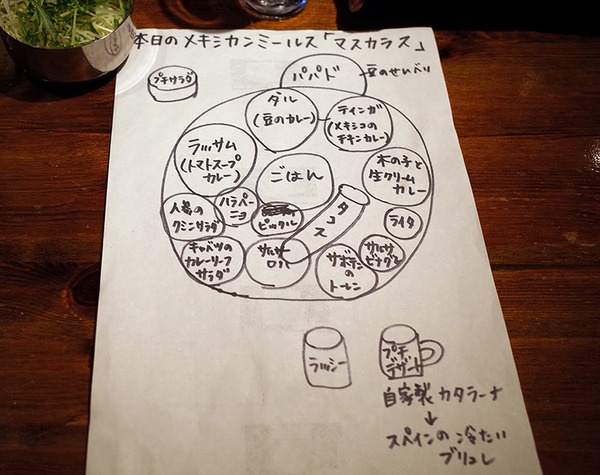 本日のメキシカンミールス「マスカラス」
プチサラダ
パパド
豆のせんべい
ダル
(豆のカレー)
ティンガ
(メキシコの
チキンカレー)
ラッサム
(トマトスープ
カレー)
ごはん
木の子と
生クリーム
カレー
人参の
クミンサラダ
ハラペー
ニョ
ピックル
タコス
ライタ
キャベツの
カレーリーフ
サラダ
サルサ
ロハ
サボテン
の
トーレン
サルサ
ビナグレ
ラッシー
プチ
デザート
自家製カタラーナ
↓
スペインの冷たい
ブリュレ